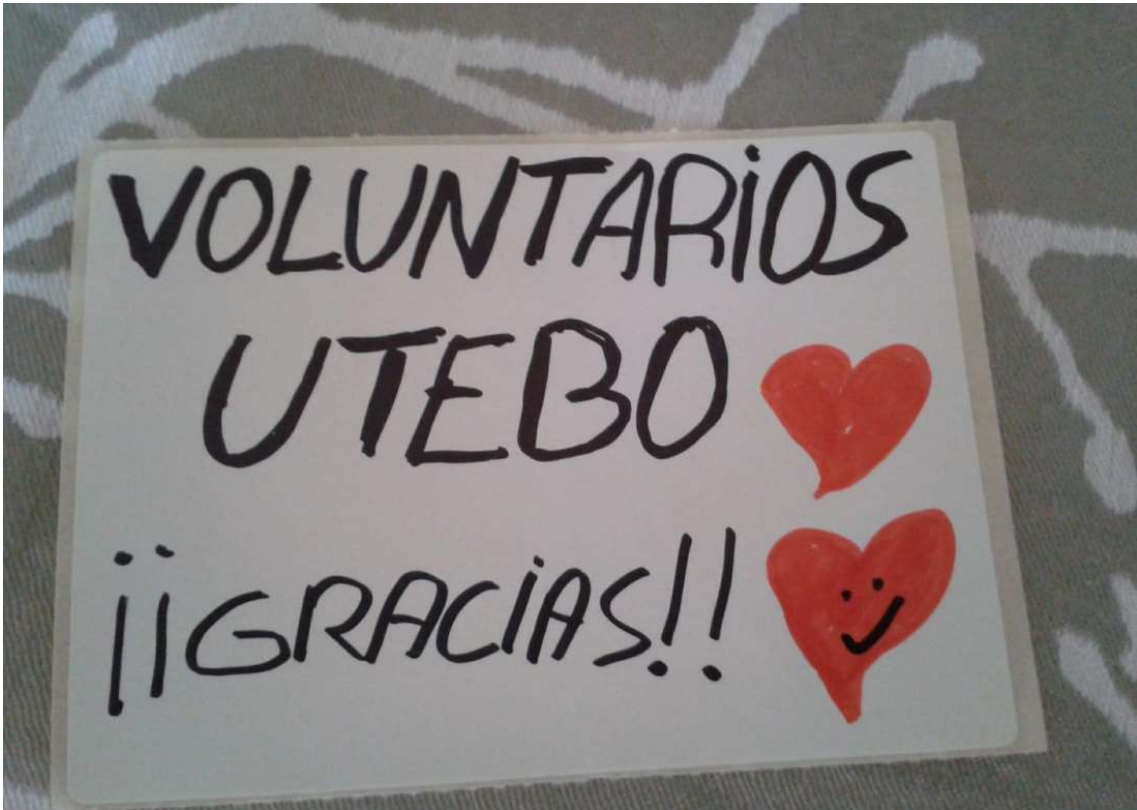 VOLUNTARiOS
UTEBO
¡¡GRACiAS!!